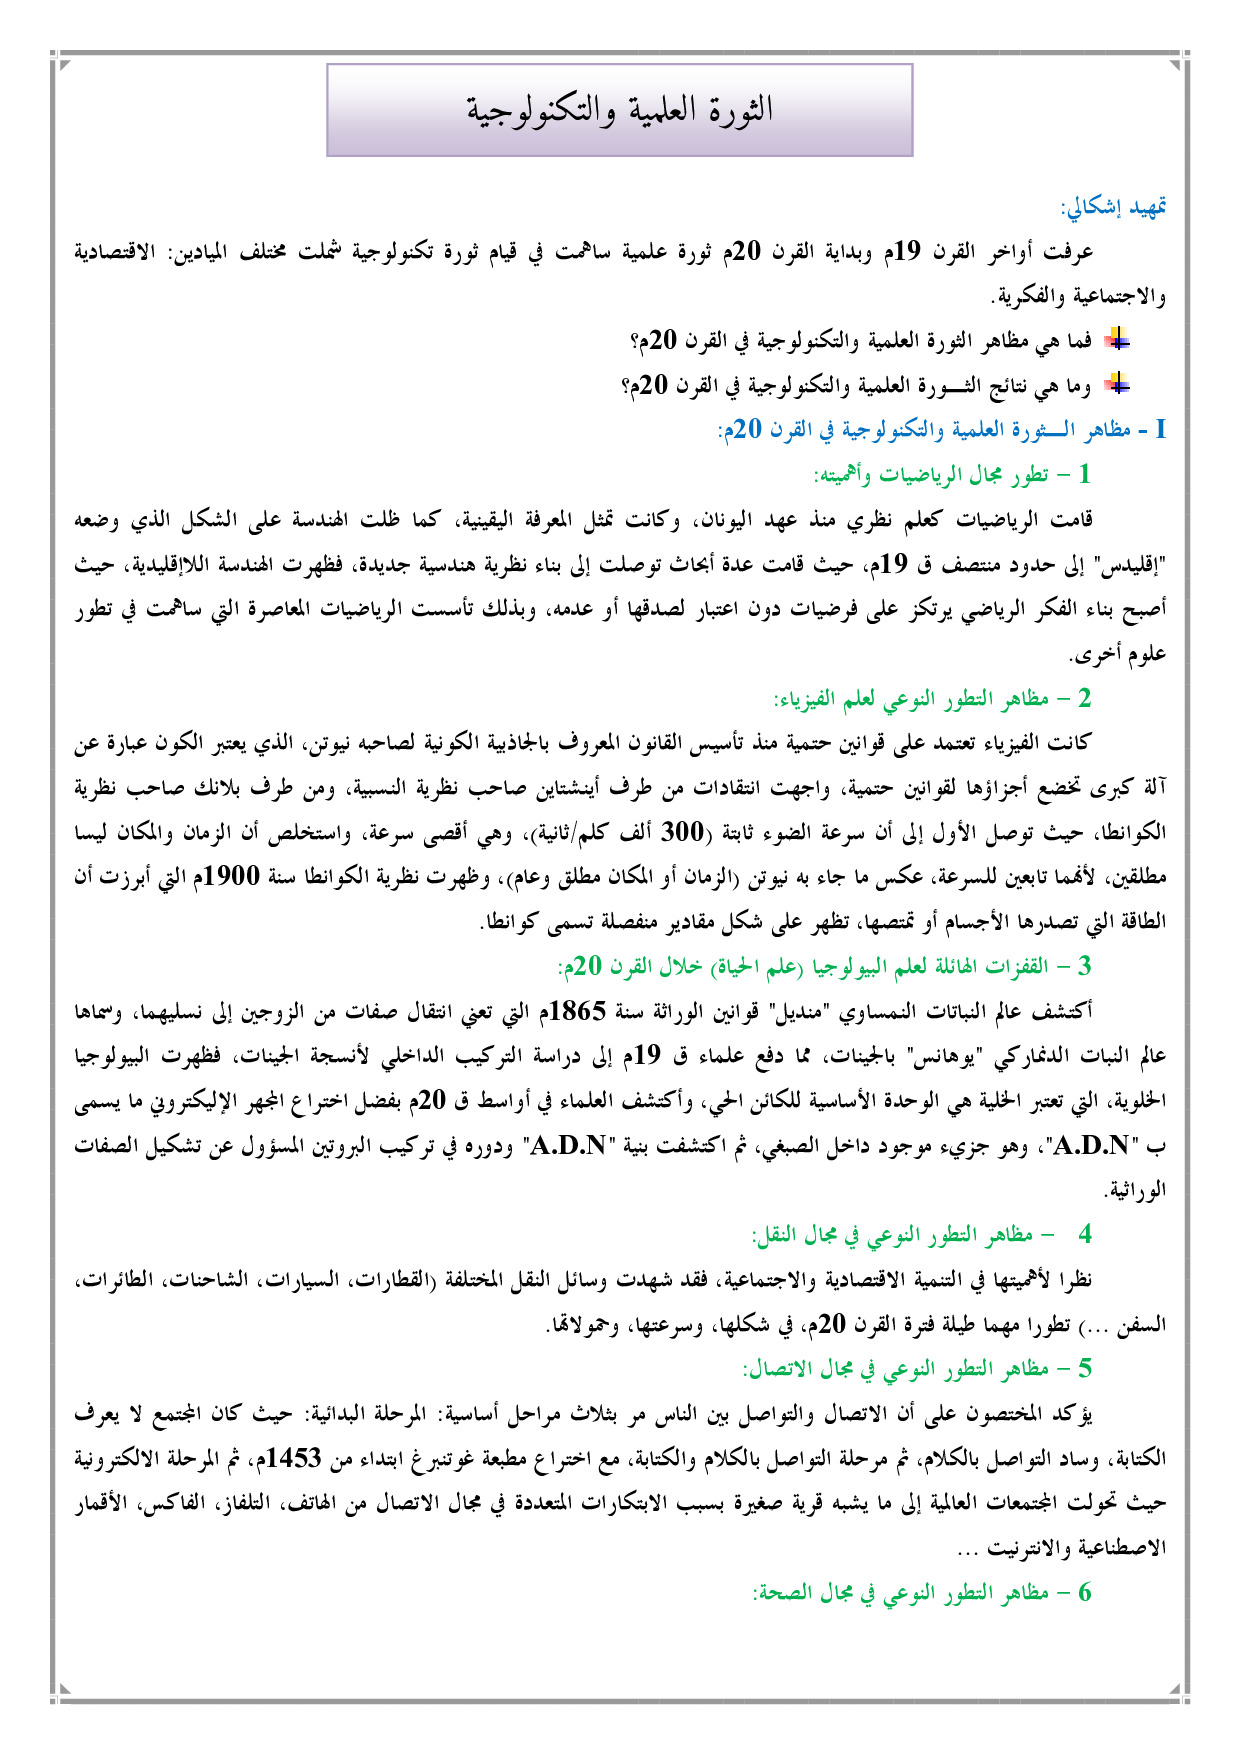 الثورة العلمية والتكنولوجية
تمهيد إشكالي:
عرفت أواخر القرن 19م وبداية القرن 20م ثورة علمية ساهمت في قيام ثورة تكنولوجية شملت مختلف الميادين: الاقتصادية
والاجتماعية والفكرية.
فما هي مظاهر الثورة العلمية والتكنولوجية في القرن 20م؟
وما هي نتائج الثـــورة العلمية والتكنولوجية في القرن 20م؟
I - مظاهر الـــثورة العلمية والتكنولوجية في القرن 20م:
1 – تطور مجال الرياضيات وأهميته:
قامت الرياضيات كعلم نظري منذ عهد اليونان، وكانت تمثل المعرفة اليقينية، كما ظلت الهندسة على الشكل الذي وضعه
"إقليدس" إلى حدود منتصف ق 19م، حيث قامت عدة أبحاث توصلت إلى بناء نظرية هندسية جديدة، فظهرت الهندسة اللاإقليدية، حيث
أصبح بناء الفكر الرياضي يرتكز على فرضيات دون اعتبار لصدقها أو عدمه، وبذلك تأسست الرياضيات المعاصرة التي ساهمت في تطور
علوم أخرى.
2 – مظاهر التطور النوعي لعلم الفيزياء:
كانت الفيزياء تعتمد على قوانين حتمية منذ تأسيس القانون المعروف بالجاذبية الكونية لصاحبه نيوتن، الذي يعتبر الكون عبارة عن
آلة كبرى تخضع أجزاؤها لقوانين حتمية، واجهت انتقادات من طرف أينشتاين صاحب نظرية النسبية، ومن طرف بلانك صاحب نظرية
الكوانطا، حيث توصل الأول إلى أن سرعة الضوء ثابتة (300 ألف كلم/ثانية)، وهي أقصى سرعة، واستخلص أن الزمان والمكان ليسا
مطلقين، لأنهما تابعين للسرعة، عكس ما جاء به نيوتن (الزمان أو المكان مطلق وعام)، وظهرت نظرية الكوانطا سنة 1900م التي أبرزت أن
الطاقة التي تصدرها الأجسام أو تمتصها، تظهر على شكل مقادير منفصلة تسمى كوانطا.
3 – القفزات الهائلة لعلم البيولوجيا (علم الحياة) خلال القرن 20م:
أكتشف عالم النباتات النمساوي "منديل" قوانين الوراثة سنة 1865م التي تعني انتقال صفات من الزوجين إلى نسليهما، وسماها
عالم النبات الدنماركي "يوهانس" بالجينات، مما دفع علماء ق 19م إلى دراسة التركيب الداخلي لأنسجة الجينات، فظهرت البيولوجيا
الخلوية، التي تعتبر الخلية هي الوحدة الأساسية للكائن الحي، وأكتشف العلماء في أواسط ق 20م بفضل اختراع المجهر الإليكتروني ما يسمى
ب "A.D.N"، وهو جزيء موجود داخل الصبغي، ثم اكتشفت بنية "A.D.N" ودوره في تركيب البروتين المسؤول عن تشكيل الصفات
الوراثية.
4 – مظاهر التطور النوعي في مجال النقل:
نظرا لأهميتها في التنمية الاقتصادية والاجتماعية، فقد شهدت وسائل النقل المختلفة (القطارات، السيارات، الشاحنات، الطائرات،
السفن ...) تطورا مهما طيلة فترة القرن 20م، في شكلها، وسرعتها، وحمولاتها.
5 – مظاهر التطور النوعي في مجال الاتصال:
يؤكد المختصون على أن الاتصال والتواصل بين الناس مر بثلاث مراحل أساسية: المرحلة البدائية: حيث كان المجتمع لا يعرف
الكتابة، وساد التواصل بالكلام، ثم مرحلة التواصل بالكلام والكتابة، مع اختراع مطبعة غوتنبرغ ابتداء من 1453م، ثم المرحلة الالكترونية
حيث تحولت المجتمعات العالمية إلى ما يشبه قرية صغيرة بسبب الابتكارات المتعددة في مجال الاتصال من الهاتف، التلفاز، الفاكس، الأقمار
الاصطناعية والانترنيت ...
6 – مظاهر التطور النوعي في مجال الصحة: